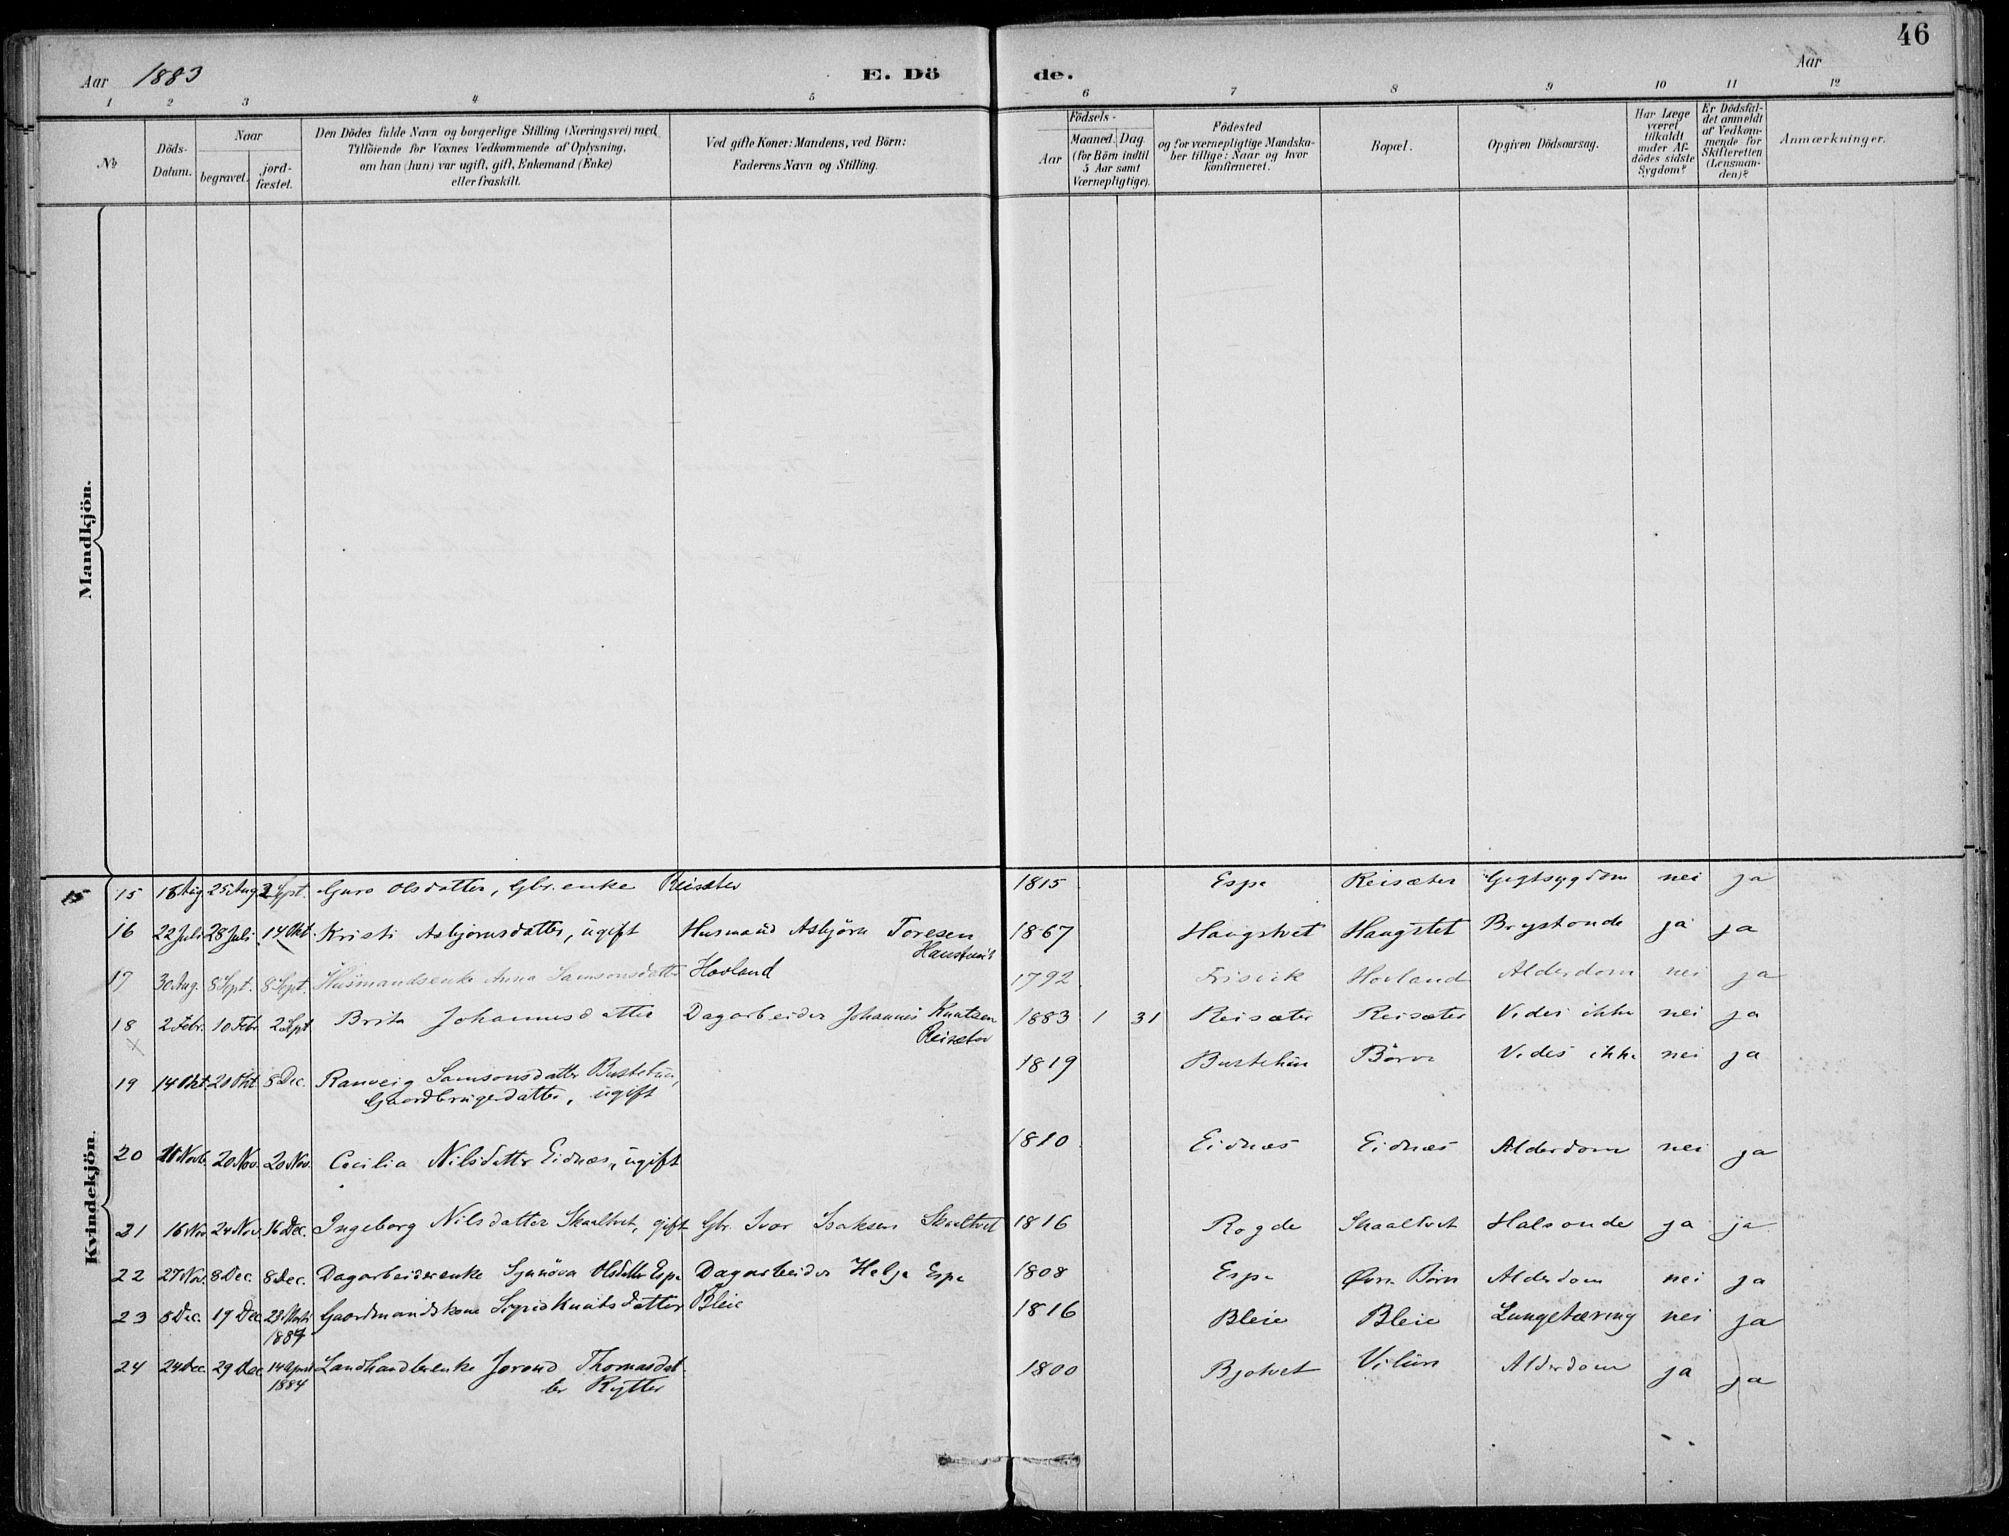 46
Aar 1883 E. Dö de. Aar
1 2 3 4 5 6 7 8 9 10 11 12
No
Döds-Datum.
Naar
begravet.
jord-fæstet.
Den Dödes fulde Navn og borgerlige Stilling (Næringsvei) med
Tilföiende for Voxnes Vedkommende af Oplysning,
om han (hun) var ugift, gift, Enkemand (Enke)
eller fraskilt.
Ved gifte Koner: Mandens, ved Börn:
Faderens Navn og Stilling.
Födsels-
Aar
Maaned. Dag
(for Börn indtil
5 Aar samt
Værnepligtige).
Födested
og for værnepligtige Mandska-
ber tillige: Naar og hvor
konfirmeret.
Bopæl.
Opgiven Dödsaarsag.
Har Læge
været
tilkaldt
under Af-
dödes sidste
Sygdom?
Er Dödsfal-
det anmeldt
af Vedkom-
mende for
Skifteretten
(Lensman-
den)?
Anmærkninger.
Mandkjön.
Kvindekjön.
15 15 18 Aug. 25 Aug. 2 Sept. Guro Olsdatter, Gbr.enke Reisæter 1815 Espe Reisæter Gigtsygdom nei ja
16 22 Juli 28 Juli 14 Okt. Kristi Asbjørnsdatter, ugift Husmand Asbjörn Toresen 1867 Haugstvet Haugstet Brystonde ja ja
17 30 Aug. 8 Sept. 8 Sept. Husmandsenke Anna Samsonsdatter Hovland 1792 Frisvik Hovland Alderdom nei ja
18 2 Febr. 10 Febr. 2 Sept. Brita Johannesdatter Dagarbeider Johannes Knutsen
Reisæter 1883 1 31 Reisæter Reisæter Vides ikke nei ja
19 14 Okt. 20 Okt. 8 Dec. Ranveig Samsonsdatter Bustetun,
Gaardbrugerdatter, ugift 1819 Bustetun Börve Vides ikke nei ja
20 11 Novb. 20 Nov. 20 Nov. Cecilia Nilsdatter Eidnæs, ugift 1810 Eidnæs Eidnæs Alderdom nei ja
21 16 Nov. 24 Nov. 16 Dec. Ingeborg Nilsdatter Skaaltvet, gift Gbr. Ivar Isaksen Skaaltvet 1816 Rogde Skaaltvet Halsonde ja ja
22 27 Nov. 8 Dec. 8 Dec. Dagarbeiderenke Synnöva Olsdatter Espe Dagarbeider Helje Espe 1808 Espe Övre Börve Alderdom nei ja
23 8 Dec. 19 Dec. 23 Marts
1884 Gaardmandskone Sigrid Knutsdatter Bleie 1816 Bleie Bleie Lungetæring nei ja
24 24 Dec. 29 Dec. 14 April
1884 Landhandlerenke Jorund Thomasdat-
ter Rytter 1800 Bjotvet Vilure Alderdom ja ja